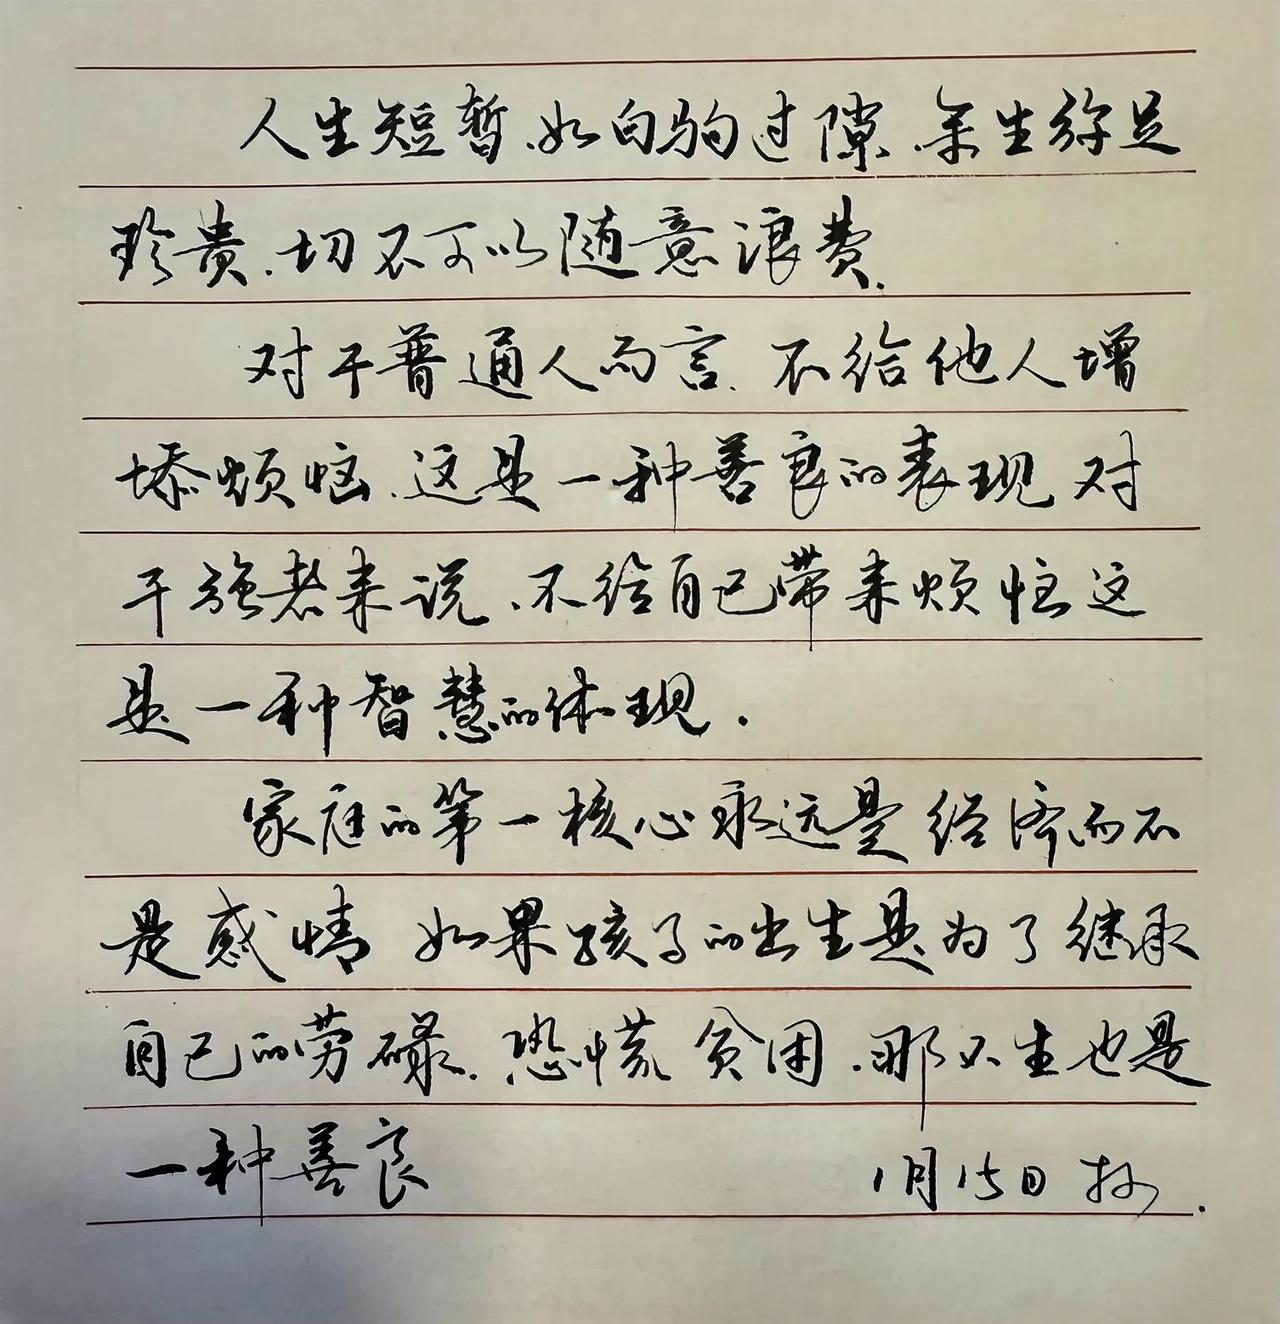 人生短暂、如白驹过隙、余生弥足
珍贵、切不可以随意浪费.
对于普通人而言、不给他人增
添烦恼、这是一种善良的表现 对
于强者来说、不给自己带来烦恼这
是一种智慧的体现.
家庭的第一核心永远是经济而不
是感情 如果孩子的出生是为了继承
自己的劳碌、恐慌 贫困、那不生也是
一种善良
1月15日 抄.